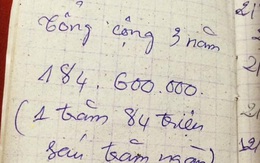 Tổng cộng 3 năm
184.600.000.
(1 trăm 84 triệu
sáu trăm ngàn)